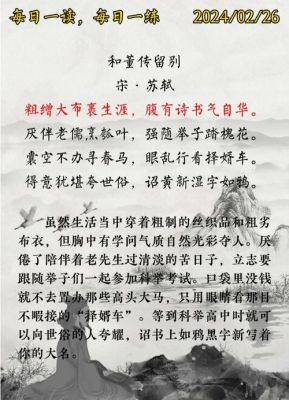 每日一读，每日一练 2024/02/26
和董传留别
宋·苏轼
粗缯大布裹生涯，腹有诗书气自华。
厌伴老儒烹瓠叶，强随举子踏槐花。
囊空不办寻春马，眼乱行看择婿车。
得意犹堪夸世俗，诏黄新湿字如鸦。
虽然生活当中穿着粗制的丝织品和粗劣
布衣，但胸中有学问气质自然光彩夺人。厌
倦了陪伴着老先生过清淡的苦日子，立志要
跟随举子们一起参加科举考试。口袋里没钱
就不去置办那些高头大马，只用眼睛看那目
不暇接的“择婿车”。等到科举高中时就可
以向世俗的人夸耀，诏书上如鸦黑字新写着
你的大名。